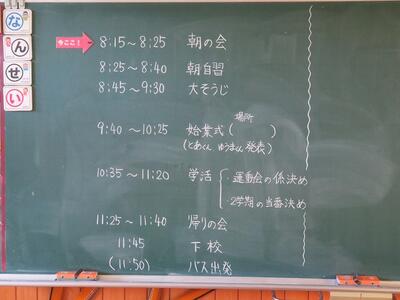 なんせい
今ここ！
8:15～8:25 朝の会
8:25～8:40 朝自習
8:45～9:30 大そうじ
場所
9:40～10:25 始業式（ ）
(とあくん ゆうまくん 発表)
10:35～11:20 学活 ・運動会の係決め
・2学期の当番決め
11:25～11:40 帰りの会
11:45 下校
(11:50) バス出発